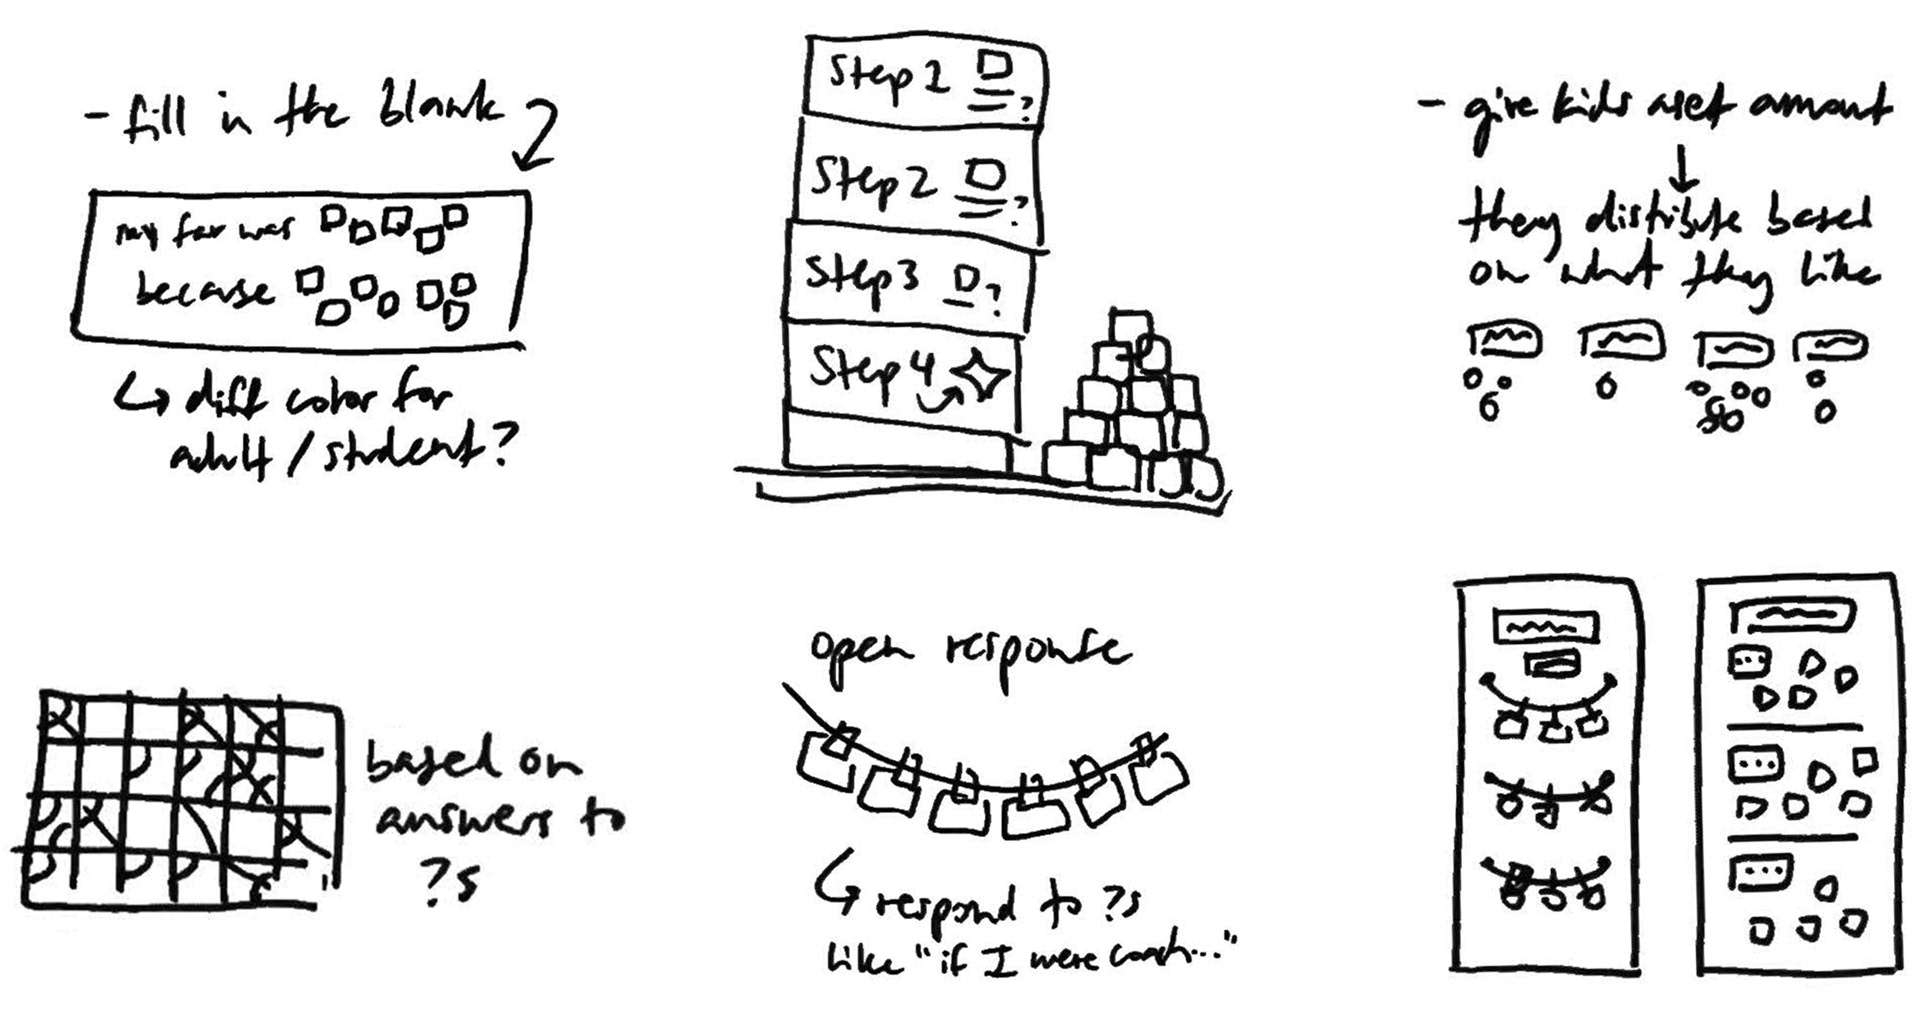 - fill in the blank
my fav was
because
diff color for
adult / student?
Step 1
?
Step 2
?
Step 3
?
Step 4
- give kids a set amount
they distribute based
on what they like
based on
answers to
?s
open response
respond to ?s
like "if I were coach..."